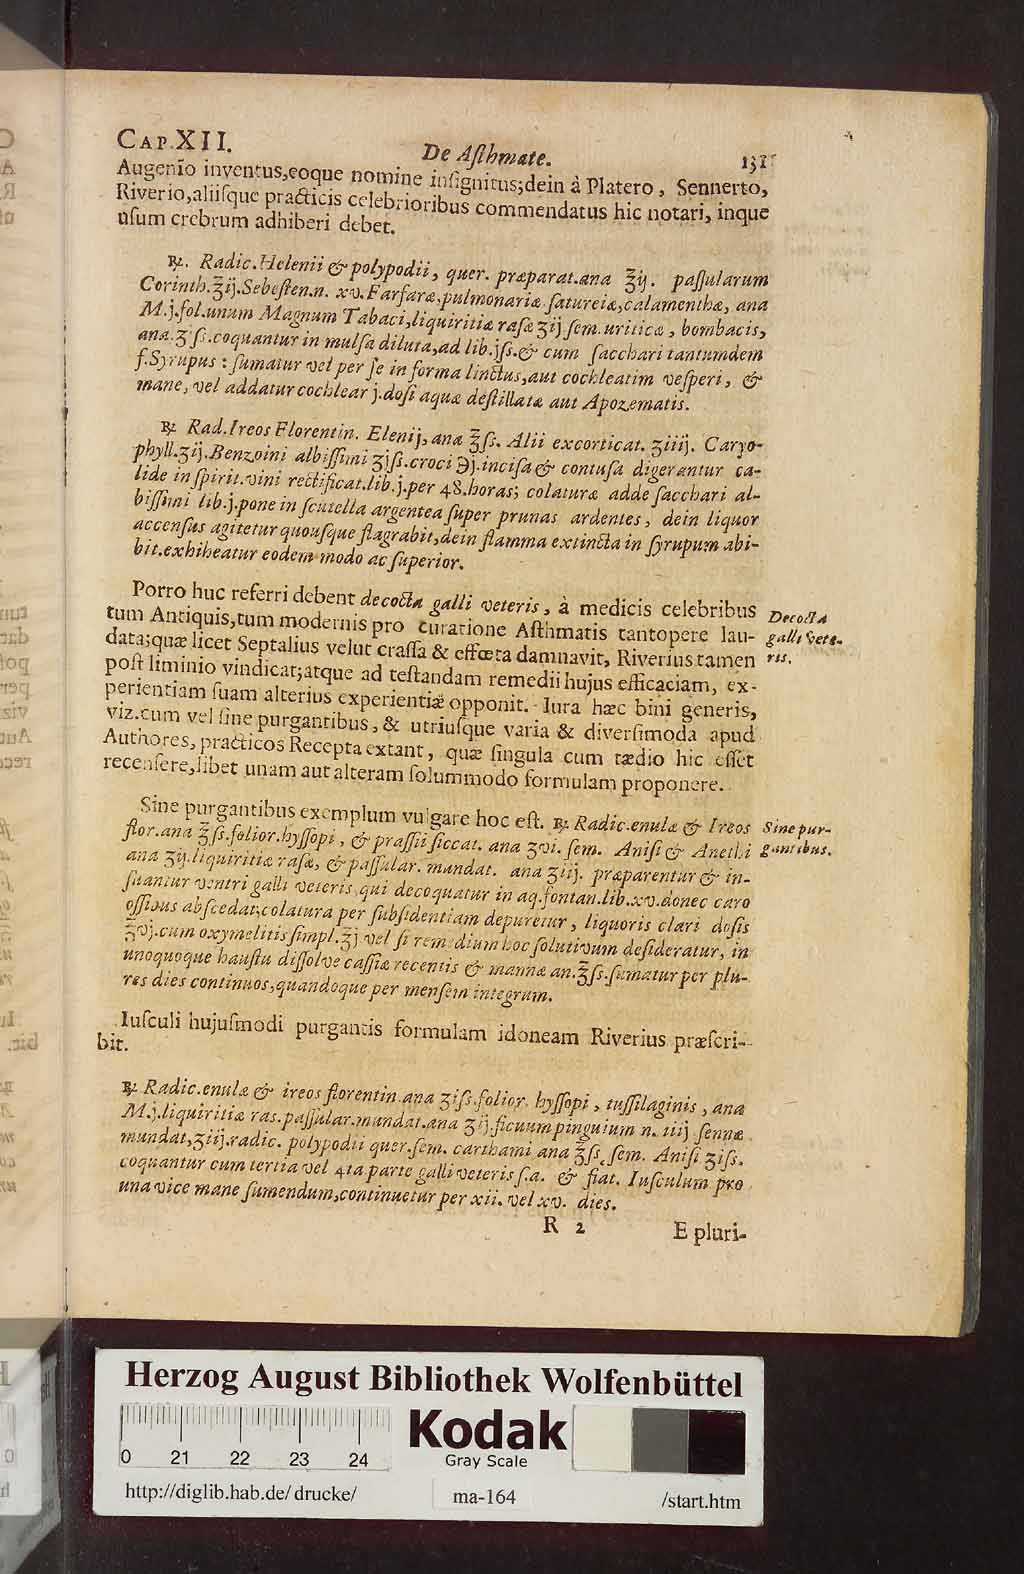 CAP. XII. De Aſthmate. 131
Augenio inventus, eoque nomine inſignitus; dein à Platero, Sennerto,
Riverio, aliiſque practicis celebrioribus commendatus hic notari, inque
uſum crebrum adhiberi debet.
℞. Radic. Helenii & polypodii, quer. præparat. ana ℥ij. paſſularum
Corinth. ℥ij. Sebeſten. n. xv. Farfaræ, pulmonariæ ſatureiæ, calamenthæ, ana
M. j. fol. unum Magnum Tabaci, liquiritiæ raſæ ʒij ſem. urticæ, bombacis,
ana. ʒſs. coquantur in mulſa diluta, ad lib. jſs. & cum ſacchari tantumdem
f. Syrupus: ſumatur vel per ſe in forma linctus, aut cochleatim veſperi, &
mane, vel addatur cochlear j. doſi aquæ deſtillatæ aut Apozematis.
℞ Rad. Ireos Florentin. Elenij, ana ℥ſs. Alii excorticat. ʒiiij. Caryo-
phyll. ʒij. Benzoini albiſſimi ʒjſs. croci ℈j. inciſa & contuſa digerantur ca-
lide in ſpirit. vini rectificat. lib. j. per 48. horas; colaturæ adde ſacchari al-
biſſimi lib. j. pone in ſcutella argentea ſuper prunas ardentes, dein liquor
accenſus agitetur quouſque flagrabit, dein flamma extincta in ſyrupum abi-
bit. exhibeatur eodem modo ac ſuperior.
Porro huc referri debent decocta galli veteris, à medicis celebribus
tum Antiquis, tum modernis pro curatione Aſthmatis tantopere lau-
data; quæ licet Septalius velut craſſa & effœta damnavit, Riverius tamen
poſt liminio vindicat; atque ad teſtandam remedii hujus efficaciam, ex-
perientiam ſuam alterius experientiæ opponit. Iura hæc bini generis,
viz. cum vel ſine purgantibus, & utriuſque varia & diverſimoda apud
Authores, practicos Recepta extant, quæ ſingula cum tædio hic eſſet
recenſere, libet unam aut alteram ſolummodo formulam proponere.
Decocta
galli vete-
ris.
Sine purgantibus exemplum vulgare hoc eſt. ℞ Radic. enulæ & Ireos
flor. ana ℥ſs. folior. hyſſopi, & praſſii ſiccat. ana ʒvi. ſem. Aniſi & Anethi
ana ʒij. liquiritiæ raſæ, & paſſular. mandat. ana ʒiij. præparentur & in-
ſuantur ventri galli veteris, qui decoquatur in aq. fontan. lib. xv. donec caro
oſſibus abſcedat; colatura per ſubſidentiam depuretur, liquoris clari doſis
℥vj. cum oxymelitis ſimpl. ℥j vel ſi remedium hoc ſolutivum deſideratur, in
unoquoque hauſtu diſſolve caſſiæ recentis & mannæ an. ℥ſs. ſumatur per plu-
res dies continuos, quandoque per menſem integrum.
Sine pur-
gantibus.
Iuſculi hujuſmodi purgantis formulam idoneam Riverius præſcri-
bit.
℞ Radic. enulæ & ireos florentin. ana ʒiſs. folior. hyſſopi, tuſſilaginis, ana
M. j. liquiritiæ ras. paſſular. mundat. ana ʒij. ficuum pinguium n. iiij ſennæ
mundat, ʒiij. radic. polypodii quer. ſem. carthami ana ℥ſs. ſem. Aniſi ʒiſs.
coquantur cum tertia vel 4ta parte galli veteris ſ. a. & fiat. Iuſculum pro
una vice mane ſumendum, continuetur per xii. vel xv. dies.
R 2 E pluri-
Herzog August Bibliothek Wolfenbüttel
0 21 22 23 24
Kodak
Gray Scale
http://diglib.hab.de/drucke/ ma-164 /start.htm